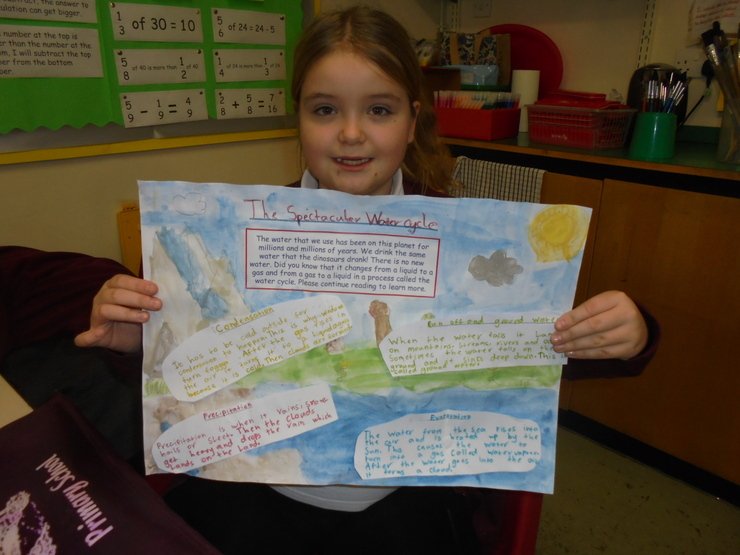 ubtract, the answer to
ulation can get bigger.
number at the top is
er than the number at the
om, I will subtract the top
er from the bottom
ber.
1/3 of 30 = 10
5/8 of 40 is more than 1/2 of 40
5/9 - 1/9 = 4/9
5/6 of 24 = 24 - 5
1/4 of 24 is more than 1/3
2 + 5/8 = 7/16
The Spectacular Water cycle
The water that we use has been on this planet for
millions and millions of years. We drink the same
water that the dinosaurs drank! There is no new
water. Did you know that it changes from a liquid to a
gas and from a gas to a liquid in a process called the
water cycle. Please continue reading to learn more.
Condensation
It has to be cold outside for
condensation to happen. This is why windows
turn foggy. After the gas rises in
the air it turns it to a liquid again
because it is cold. Then clouds are formed
Run off and ground water
When the water falls it lands
on mountains, streams, rivers and
Sometimes the water falls on the
ground and it sinks deep down. This is
called ground water.
Precipitation
Precipitation is when it rains, snows
hails or sleets. Then the clouds
get heavy and drops the rain which
lands on the land.
Evaporation
The water from the sea rises into
the air and is heated up by the
Sun. This causes the water to
turn into a gas called water vapour
After the water goes into the air
it forms a cloud.
Primary School